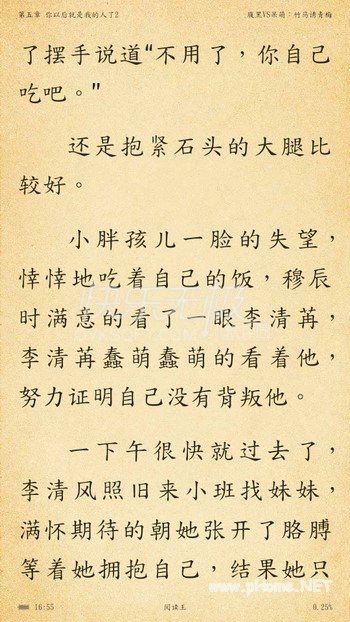 第五章 你以后就是我的人了2 腹黑VS呆萌：竹马诱青梅
了摆手说道“不用了，你自己
吃吧。”
还是抱紧石头的大腿比
较好。
小胖孩儿一脸的失望，
悻悻地吃着自己的饭，穆辰
时满意的看了一眼李清苒，
李清苒蠢萌蠢萌的看着他，
努力证明自己没有背叛他。
一下午很快就过去了，
李清风照旧来小班找妹妹，
满怀期待的朝她张开了胳膊
等着她拥抱自己，结果她只
16:55 阅读王 0.25%
www.pHome.NET